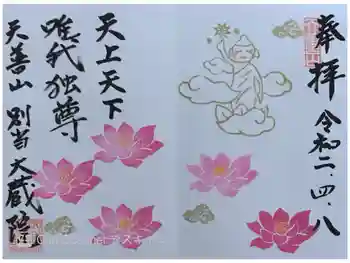 奉拝
令和二、四、八
天上天下
唯我独尊
天善山 別当大蔵院